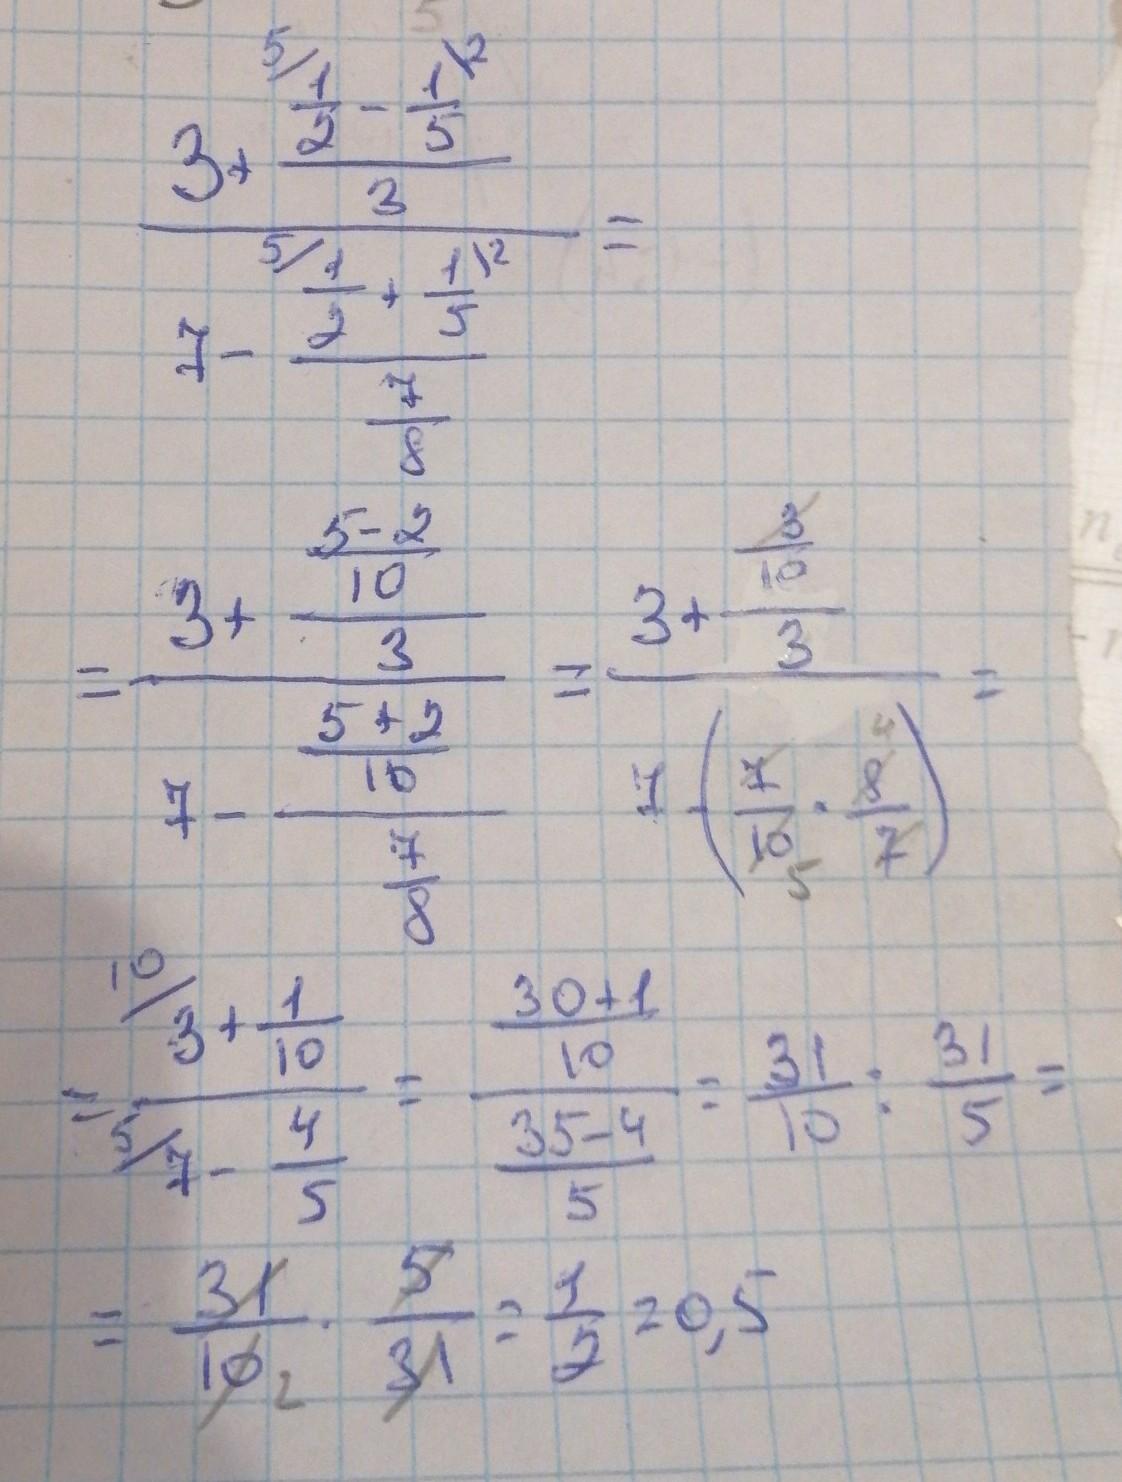 5/ 1/2 - 1/5 \2
3+ ─ 3 =
5/ 1/2 + 1/5 \2
7 - ─ 7/8
= (3 + ((5-2)/10)/3) / (7 - ((5+2)/10)/(7/8)) = (3 + (3/10)/3) / (7 - (7/10 5 · 8/7 4)) =
= (10/ 3 + 1/10) / (5/ 7 - 4/5) = ((30+1)/10) / ((35-4)/5) = 31/10 : 31/5 =
= 31/10 2 · 5/31 = 1/2 = 0,5